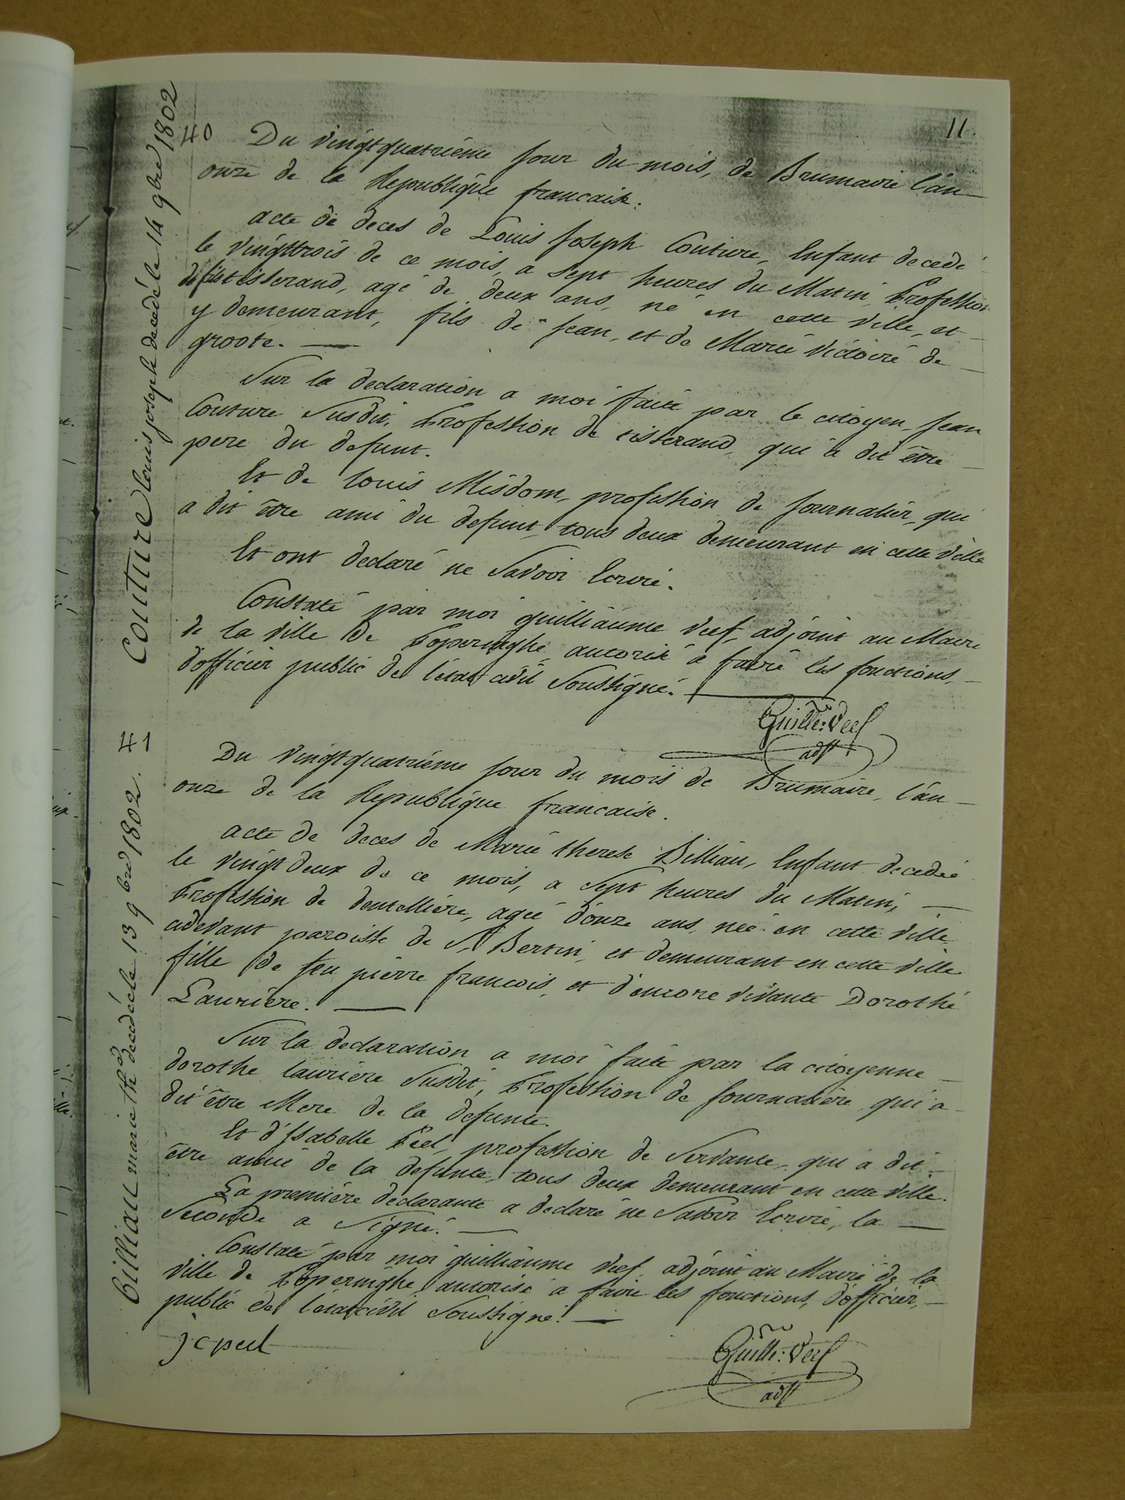 11.
40
Couture louis joseph decedé le 14 9bre 1802
Du vingtquatriéme jour du mois, de Brumaire l'an
onze de la Republique francaise.
acte de deces de Louis Joseph Couture, Enfant decedé
le vingttrois de ce mois, a sept heures du Matin, Profession
de tisserand, agé de deux ans, né en cette ville et
y demeurant, fils de Jean, et de Marie Victoire de
groote.
Sur la declaration a moi faite par le citoyen Jean
Couture Susdit, Profession de tisserand, qui a dit être
pere du defunt.
Et de louis Misdom, profession de Journalier, qui
a dit être ami du defunt, tous deux demeurant en cette ville
Et ont declaré ne Savoir Ecrire.
Constaté par moi guilliaume Veef, adjoint au Maire
de la ville de Poperinghe autorisé a faire les fonctions
d'officier public de l'état civil Soussigné.
Guille: Veef
adjt
41
billiau marie thé decedée le 13 9bre 1802.
Du vingtquatriéme jour du mois de Brumaire, l'an
onze de la Republique francaise.
acte de deces de Marie therese Billiau, Enfant decedée
le vingt deux de ce mois, a sept heures du Matin,
Profession de dentelliere, agée d'onze ans, née en cette ville
cidevant paroisse de St Bertin, et demeurant en cette ville
fille de feu pierre francois, et d'encore vivante Dorothé
Lauriere.
Sur la declaration a moi faite par la citoyenne
dorothe lauriere Susdit, Profession de Journaliere qui a
dit être Mere de la defunte.
Et d'Isabelle Peel, profession de Servante, qui a dit
être amie de la defunte, tous deux demeurant en cette ville.
La premiére declarante a declaré ne Savoir Ecrire, la
Seconde a Signé.
Constaté par moi guilliaume Veef adjoint au Maire de la
ville de Poperinghe autorisé a faire les fonctions d'officier
public de l'état civil Soussigné.
j c peel
Guille: Veef
adjt